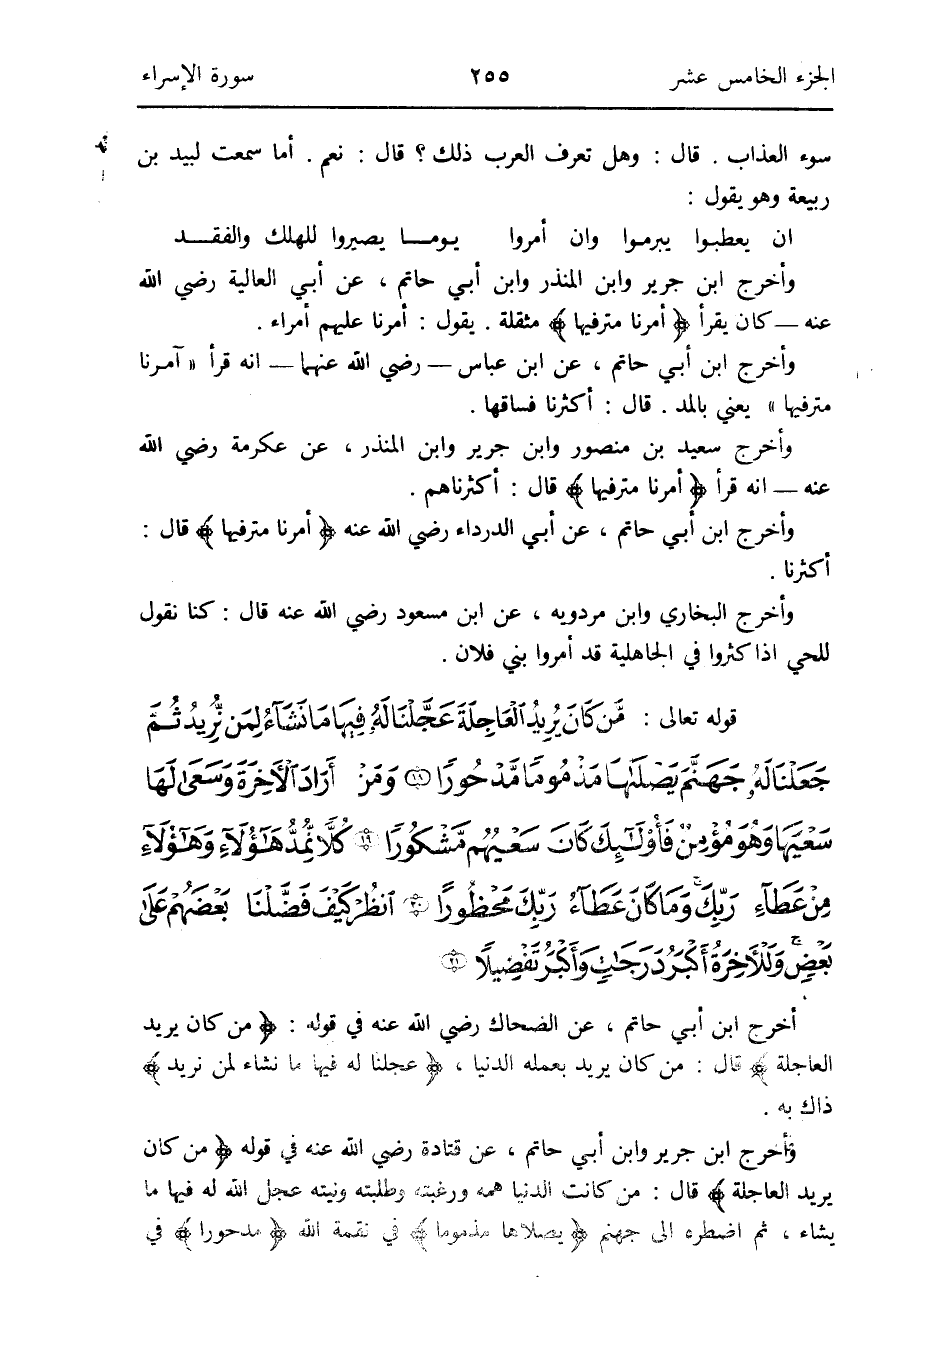 الجزء الخامس عشر ٢٥٥ سورة الإسراء
سوء العذاب . قال : وهل تعرف العرب ذلك ؟ قال : نعم . أما سمعت لبيد بن
ربيعة وهو يقول :
ان يعطبوا يبرموا وان أمروا يومـــا يصيروا للهلك والفقـــد
وأخرج ابن جرير وابن المنذر وابن أبي حاتم ، عن أبي العالية رضي الله
عنه — كان يقرأ ﴿ أمرنا مترفيها ﴾ مثقلة . يقول : أمرنا عليهم أمراء .
وأخرج ابن أبي حاتم ، عن ابن عباس — رضي الله عنهما — انه قرأ « آمرنا
مترفيها » يعني بالمد . قال : أكثرنا فساقها .
وأخرج سعيد بن منصور وابن جرير وابن المنذر ، عن عكرمة رضي الله
عنه — انه قرأ ﴿ أمرنا مترفيها ﴾ قال : أكثرناهم .
وأخرج ابن أبي حاتم ، عن أبي الدرداء رضي الله عنه ﴿ أمرنا مترفيها ﴾ قال :
أكثرنا .
وأخرج البخاري وابن مردويه ، عن ابن مسعود رضي الله عنه قال : كنا نقول
للحي اذا كثروا في الجاهلية قد أمروا بني فلان .
قوله تعالى : مَّن كَانَ يُرِيدُ ٱلْعَاجِلَةَ عَجَّلْنَا لَهُۥ فِيهَا مَا نَشَآءُ لِمَن نُّرِيدُ ثُمَّ
جَعَلْنَا لَهُۥ جَهَنَّمَ يَصْلَىٰهَا مَذْمُومًا مَّدْحُورًا ۝١٨ وَمَنْ أَرَادَ ٱلْأَخِرَةَ وَسَعَىٰ لَهَا
سَعْيَهَا وَهُوَ مُؤْمِنٌ فَأُو۟لَٰٓئِكَ كَانَ سَعْيُهُم مَّشْكُورًا ۝١٩ كُلًّا نُّمِدُّ هَٰٓؤُلَآءِ وَهَٰٓؤُلَآءِ
مِنْ عَطَآءِ رَبِّكَ ۚ وَمَا كَانَ عَطَآءُ رَبِّكَ مَحْظُورًا ۝٢٠ ٱنظُرْ كَيْفَ فَضَّلْنَا بَعْضَهُمْ عَلَىٰ
بَعْضٍ ۚ وَلَلْأَخِرَةُ أَكْبَرُ دَرَجَٰتٍ وَأَكْبَرُ تَفْضِيلًا ۝٢١
أخرج ابن أبي حاتم ، عن الضحاك رضي الله عنه في قوله : ﴿ من كان يريد
العاجلة ﴾ قال : من كان يريد بعمله الدنيا ، ﴿ عجلنا له فيها ما نشاء لمن نريد ﴾
ذاك به .
وأخرج ابن جرير وابن أبي حاتم ، عن قتادة رضي الله عنه في قوله ﴿ من كان
يريد العاجلة ﴾ قال : من كانت الدنيا همه ورغبته وطلبته ونيته عجل الله له فيها ما
يشاء ، ثم اضطره الى جهنم ﴿ يصلاها مذموما ﴾ في نقمة الله ﴿ مدحورا ﴾ في